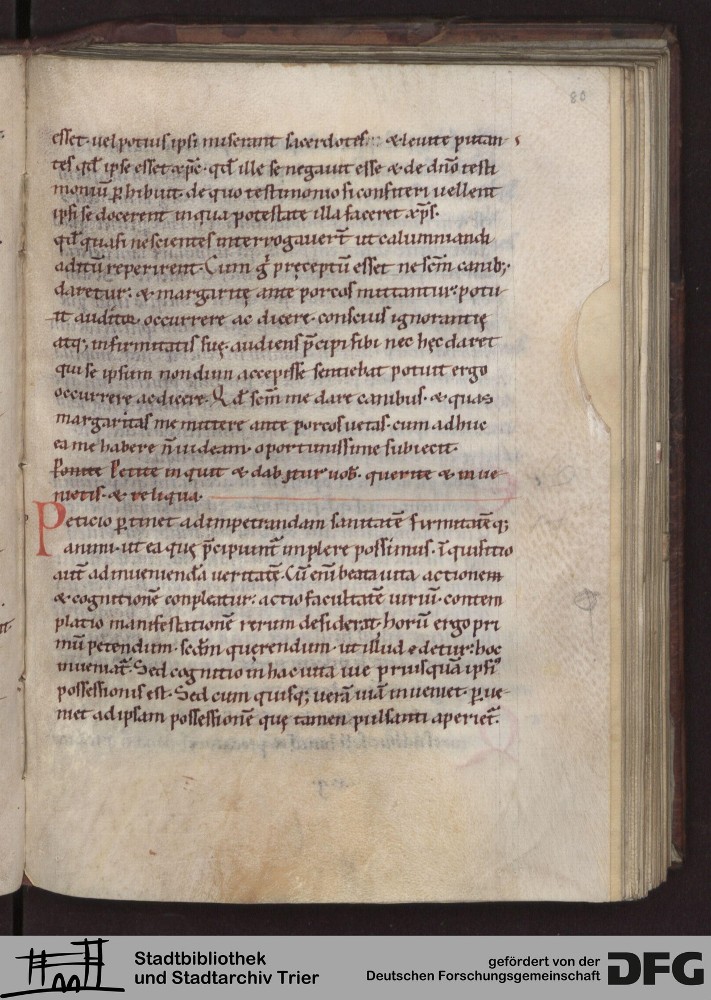 80
esset. uel potius ipsi miserant sacerdotes & leuite putan
tes qd ipse esset xpc. qd ille se negauit esse & de dno testi
moniū phibuit. de quo testimonio si confiteri uellent
ipsi se docerent in qua potestate illa faceret xps.
qd quasi nescientes interrogauerт ut calumniandi
aditū reperirent. Cum g̊ pręceptū esset ne scm canib;
daretur: & margaritę ante porcos mittantur. potu
it auditor occurrere ac dicere. conscius ignorantię
atq; infirmitatis suę. audiens p̄cipi sibi nec hęc daret
qui se ipsum nondum accepisse sentiebat potuit ergo
occurrere ac dicere. Qd scm me dare canibus. & quas
margaritas me mittere ante porcos uetas. cum adhuc
ea me habere n̄ uideam. oportunissime subiecit.
Petite inquit & dabitur uob. querite & inue
nietis. & reliqua.
Peticio ptinet ad impetrandam sanitatē firmitatēq;
animi. ut ea quę p̄cipiunt̄ implere possimus. īquisitio
aūt ad inueniendā ueritatē. Cū enī beata uita actionem
& cognitionē conpleatur: actio facultatē uiriū. contem
platio manifestationē rerum desiderat. horū ergo pri
mū petendum. scdm quęrendum. ut illud detur: hoc
inueniat̄. Sed cognitio in hac uita uie priusquā ipsi
possessionis est. Sed cum quisq; uerā uiā inuenet. pue
niet ad ipsam possessionē que tamen pulsanti aperiet̄.
Stadtbibliothek
und Stadtarchiv Trier
gefördert von der
Deutschen Forschungsgemeinschaft
DFG